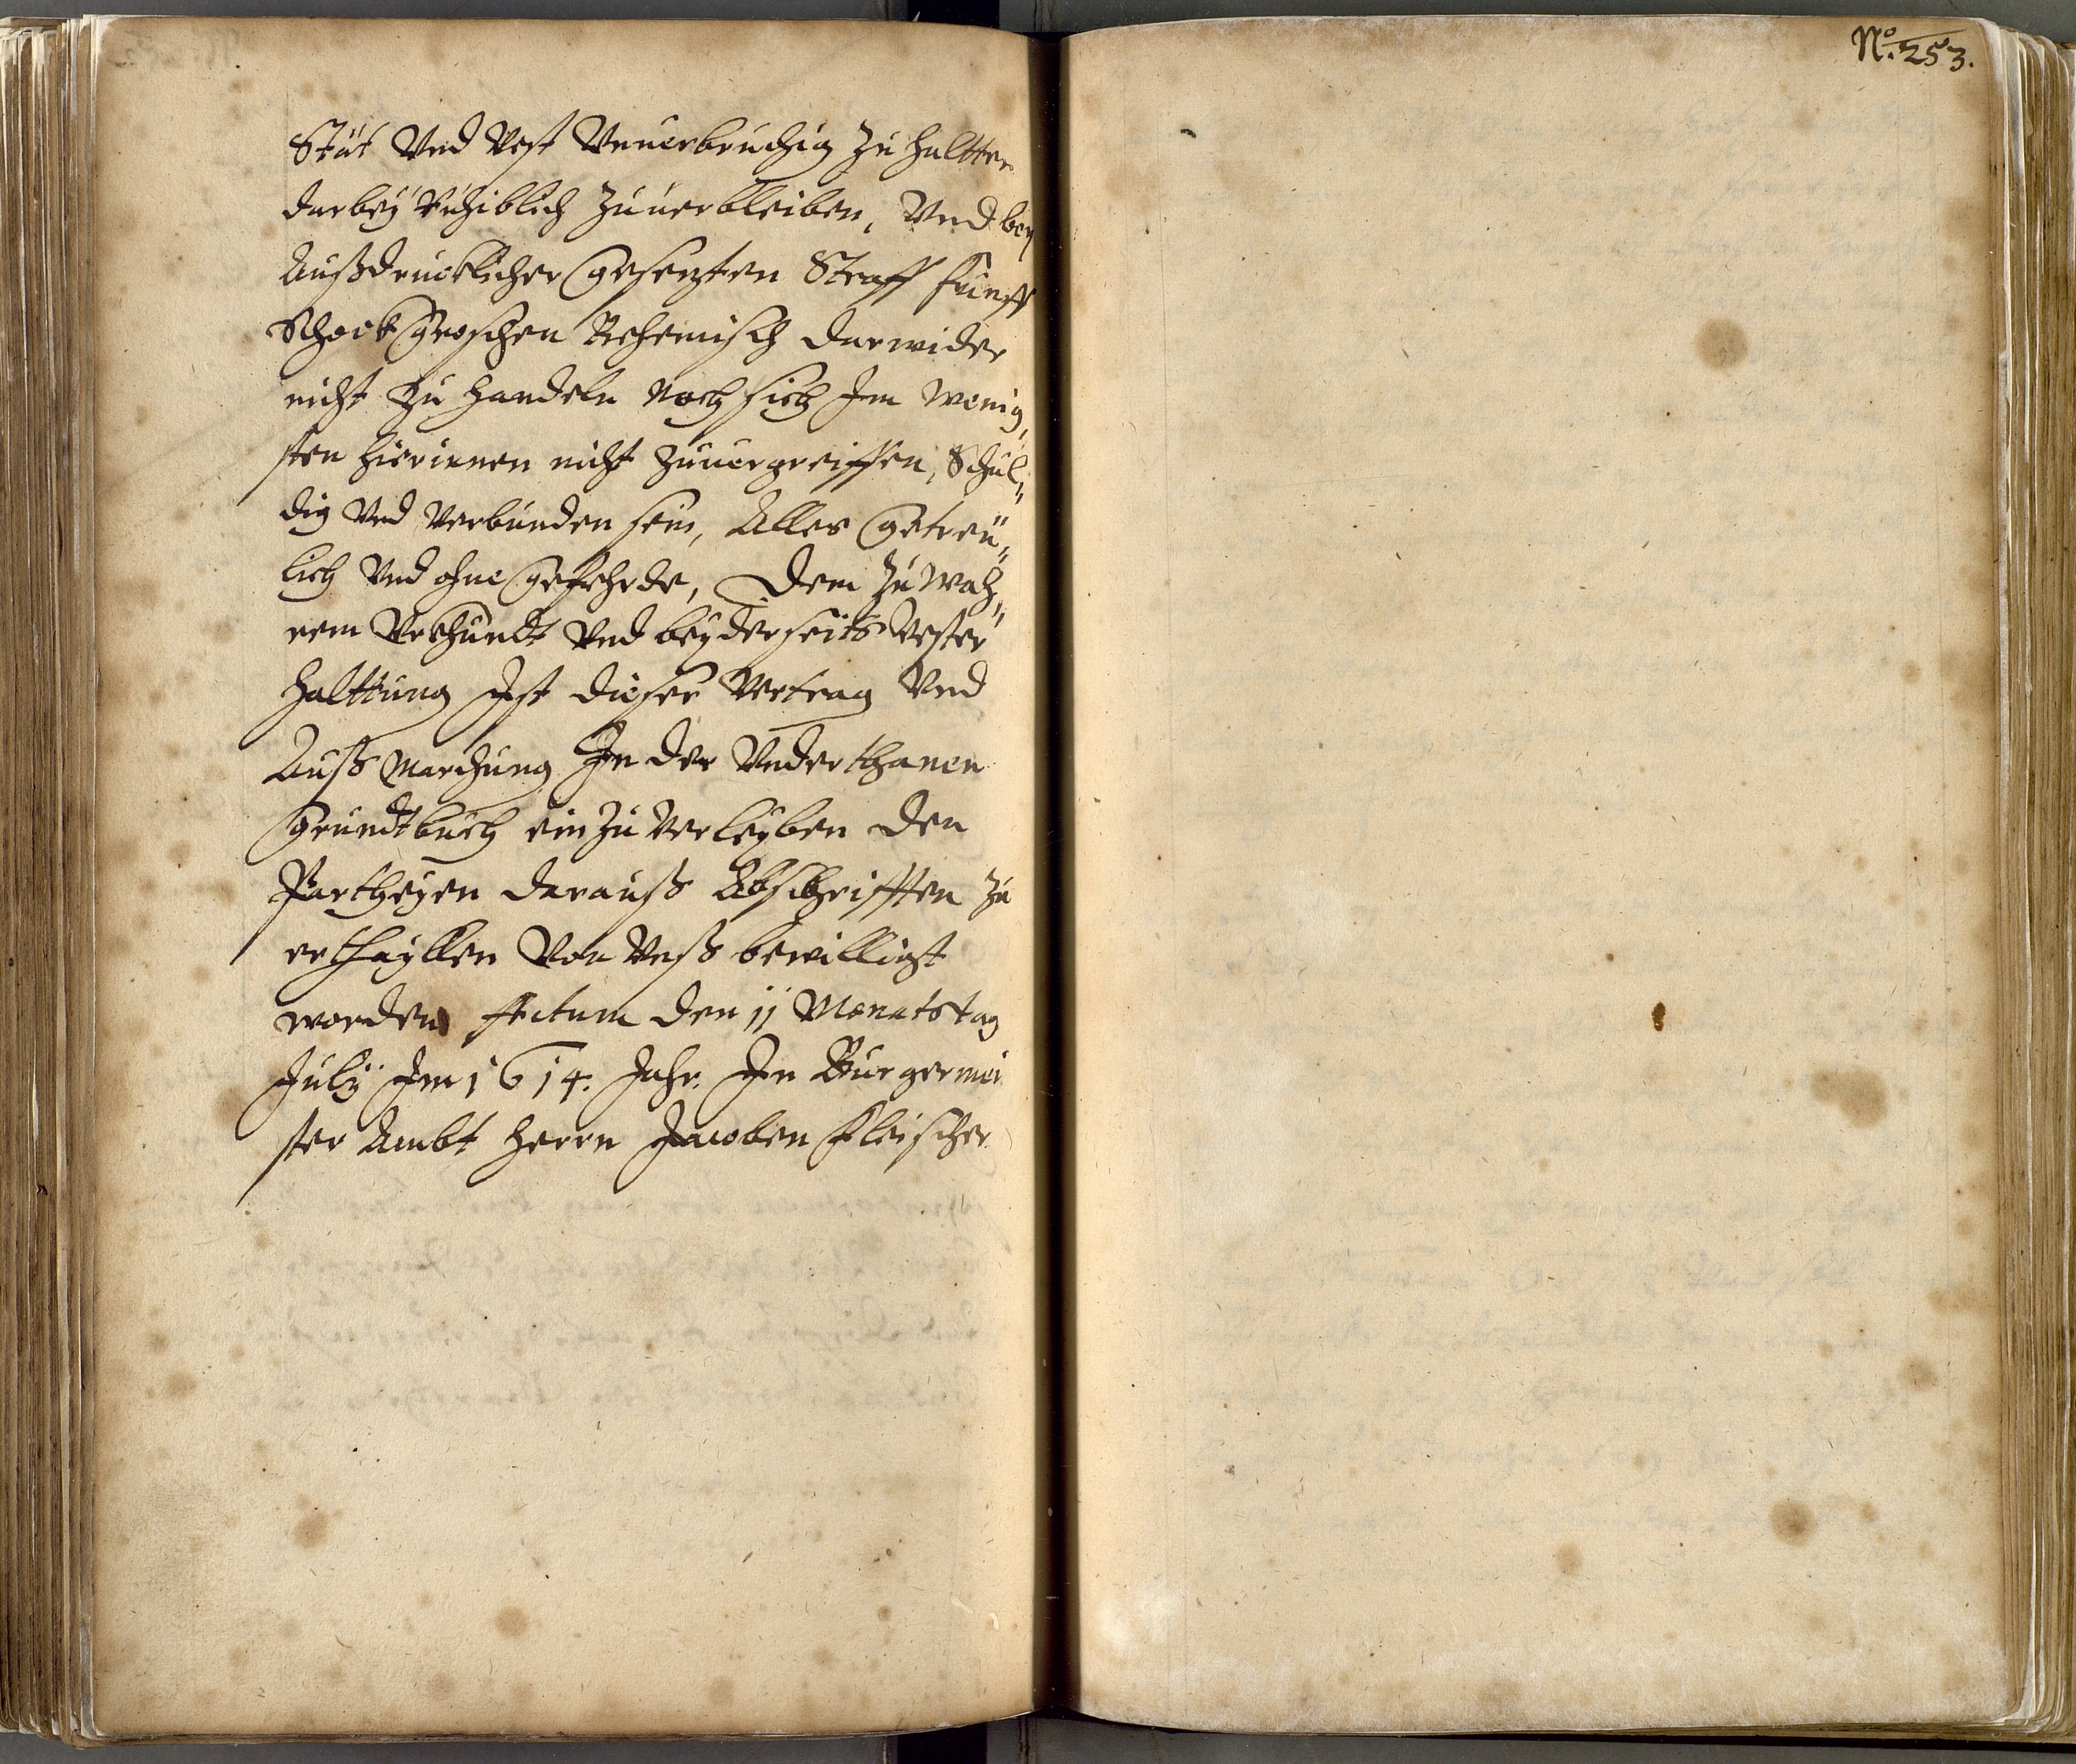 N.o 253.
Stät Vnd Vest Vnuerbruchig zu haltten
darbey Ruhiblich zuuerbleiben, Vnd bey
Außdrucklicher gesezten Straff funff
Schock groschen Behemisch darwider
nicht zu handeln noch sich Im wenig,
sten hierinnen nicht zuuergreiffen, Schul„
dig Vnd Verbunden sein, Alles getreu„
lich Vnd ohne gefehrde, Dem zu wah„
rem Vrkhundt Vnd beyderseits Vester
Halttung Ist dieser Vertrag Vnd
Auß Marchung In der Vnderthanen
Grundtbuch ein zu Verleyben den
Partheyen darauß Abschrifften zu
erthayllen Von Vnß bewilligt
worden Actum den 11 Monatstag
July Im 1614. Jahr. In Burgermei
ster Ambt Herrn Jacoben Fleischer